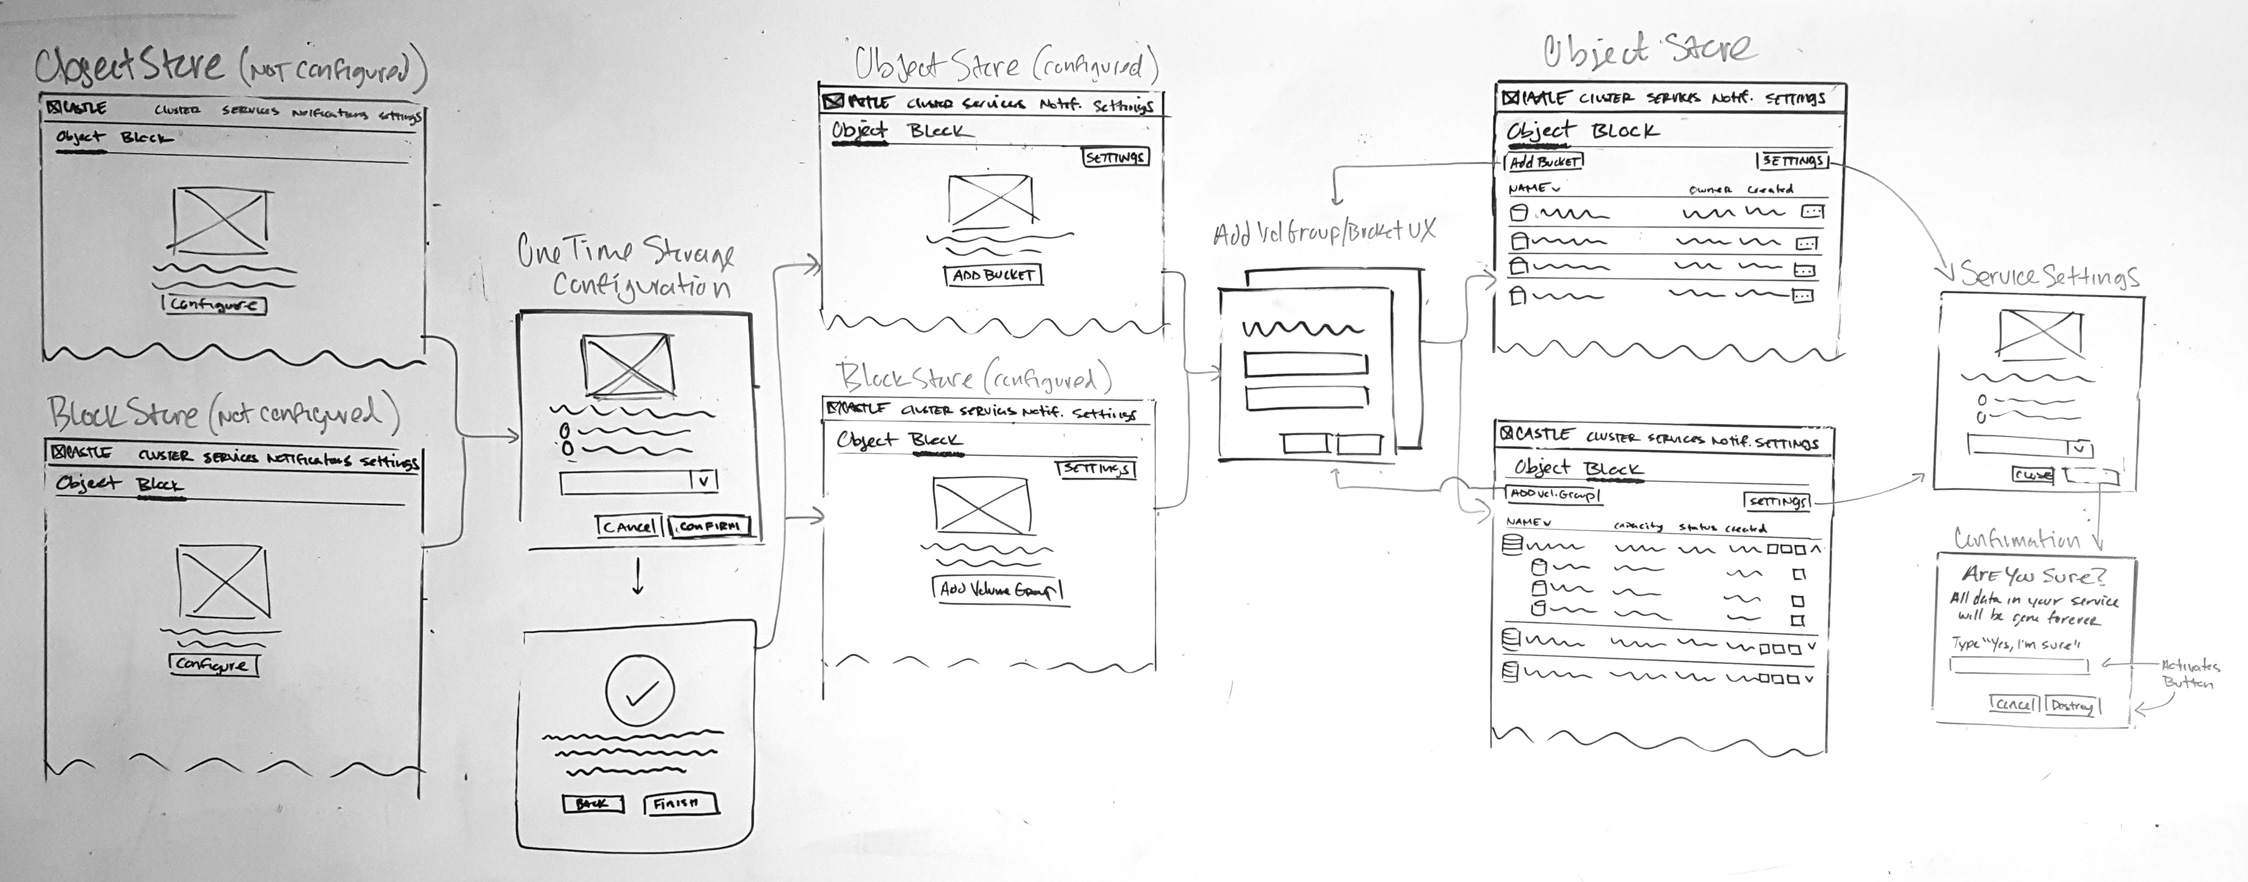 Object Store (NOT Configured)
CASTLE CLUSTER SERVICES Notifications Settings
Object Block
Configure
Block Store (Not Configured)
CASTLE CLUSTER SERVICES NOTIFICATIONS Settings
Object Block
Configure
One Time Storage
Configuration
V
CANcel CONFIRM
BACK FINISH
Object Store (configured)
CASTLE CLUSTER Services Notif. Settings
Object Block
SETTINGS
ADD BUCKET
Block Store (configured)
CASTLE CLUSTER SERVICES Notif. Settings
Object Block
SETTINGS
Add Volume Group
Add Vol Group/Bucket UX
Object Store
CASTLE CLUSTER SERVICES Notif. SETTINGS
Object BLOCK
Add BUCKET SETTINGS
NAME owner created
CASTLE CLUSTER SERVICES Notif. SETTINGS
Object Block
ADD Vol. Group SETTINGS
NAME capacity Status created
Service Settings
V
CLOSE
Confirmation
ARE YOU SURE?
All data in your service
will be gone forever
Type "Yes, I'm sure"
Activates
Button
Cancel Destroy